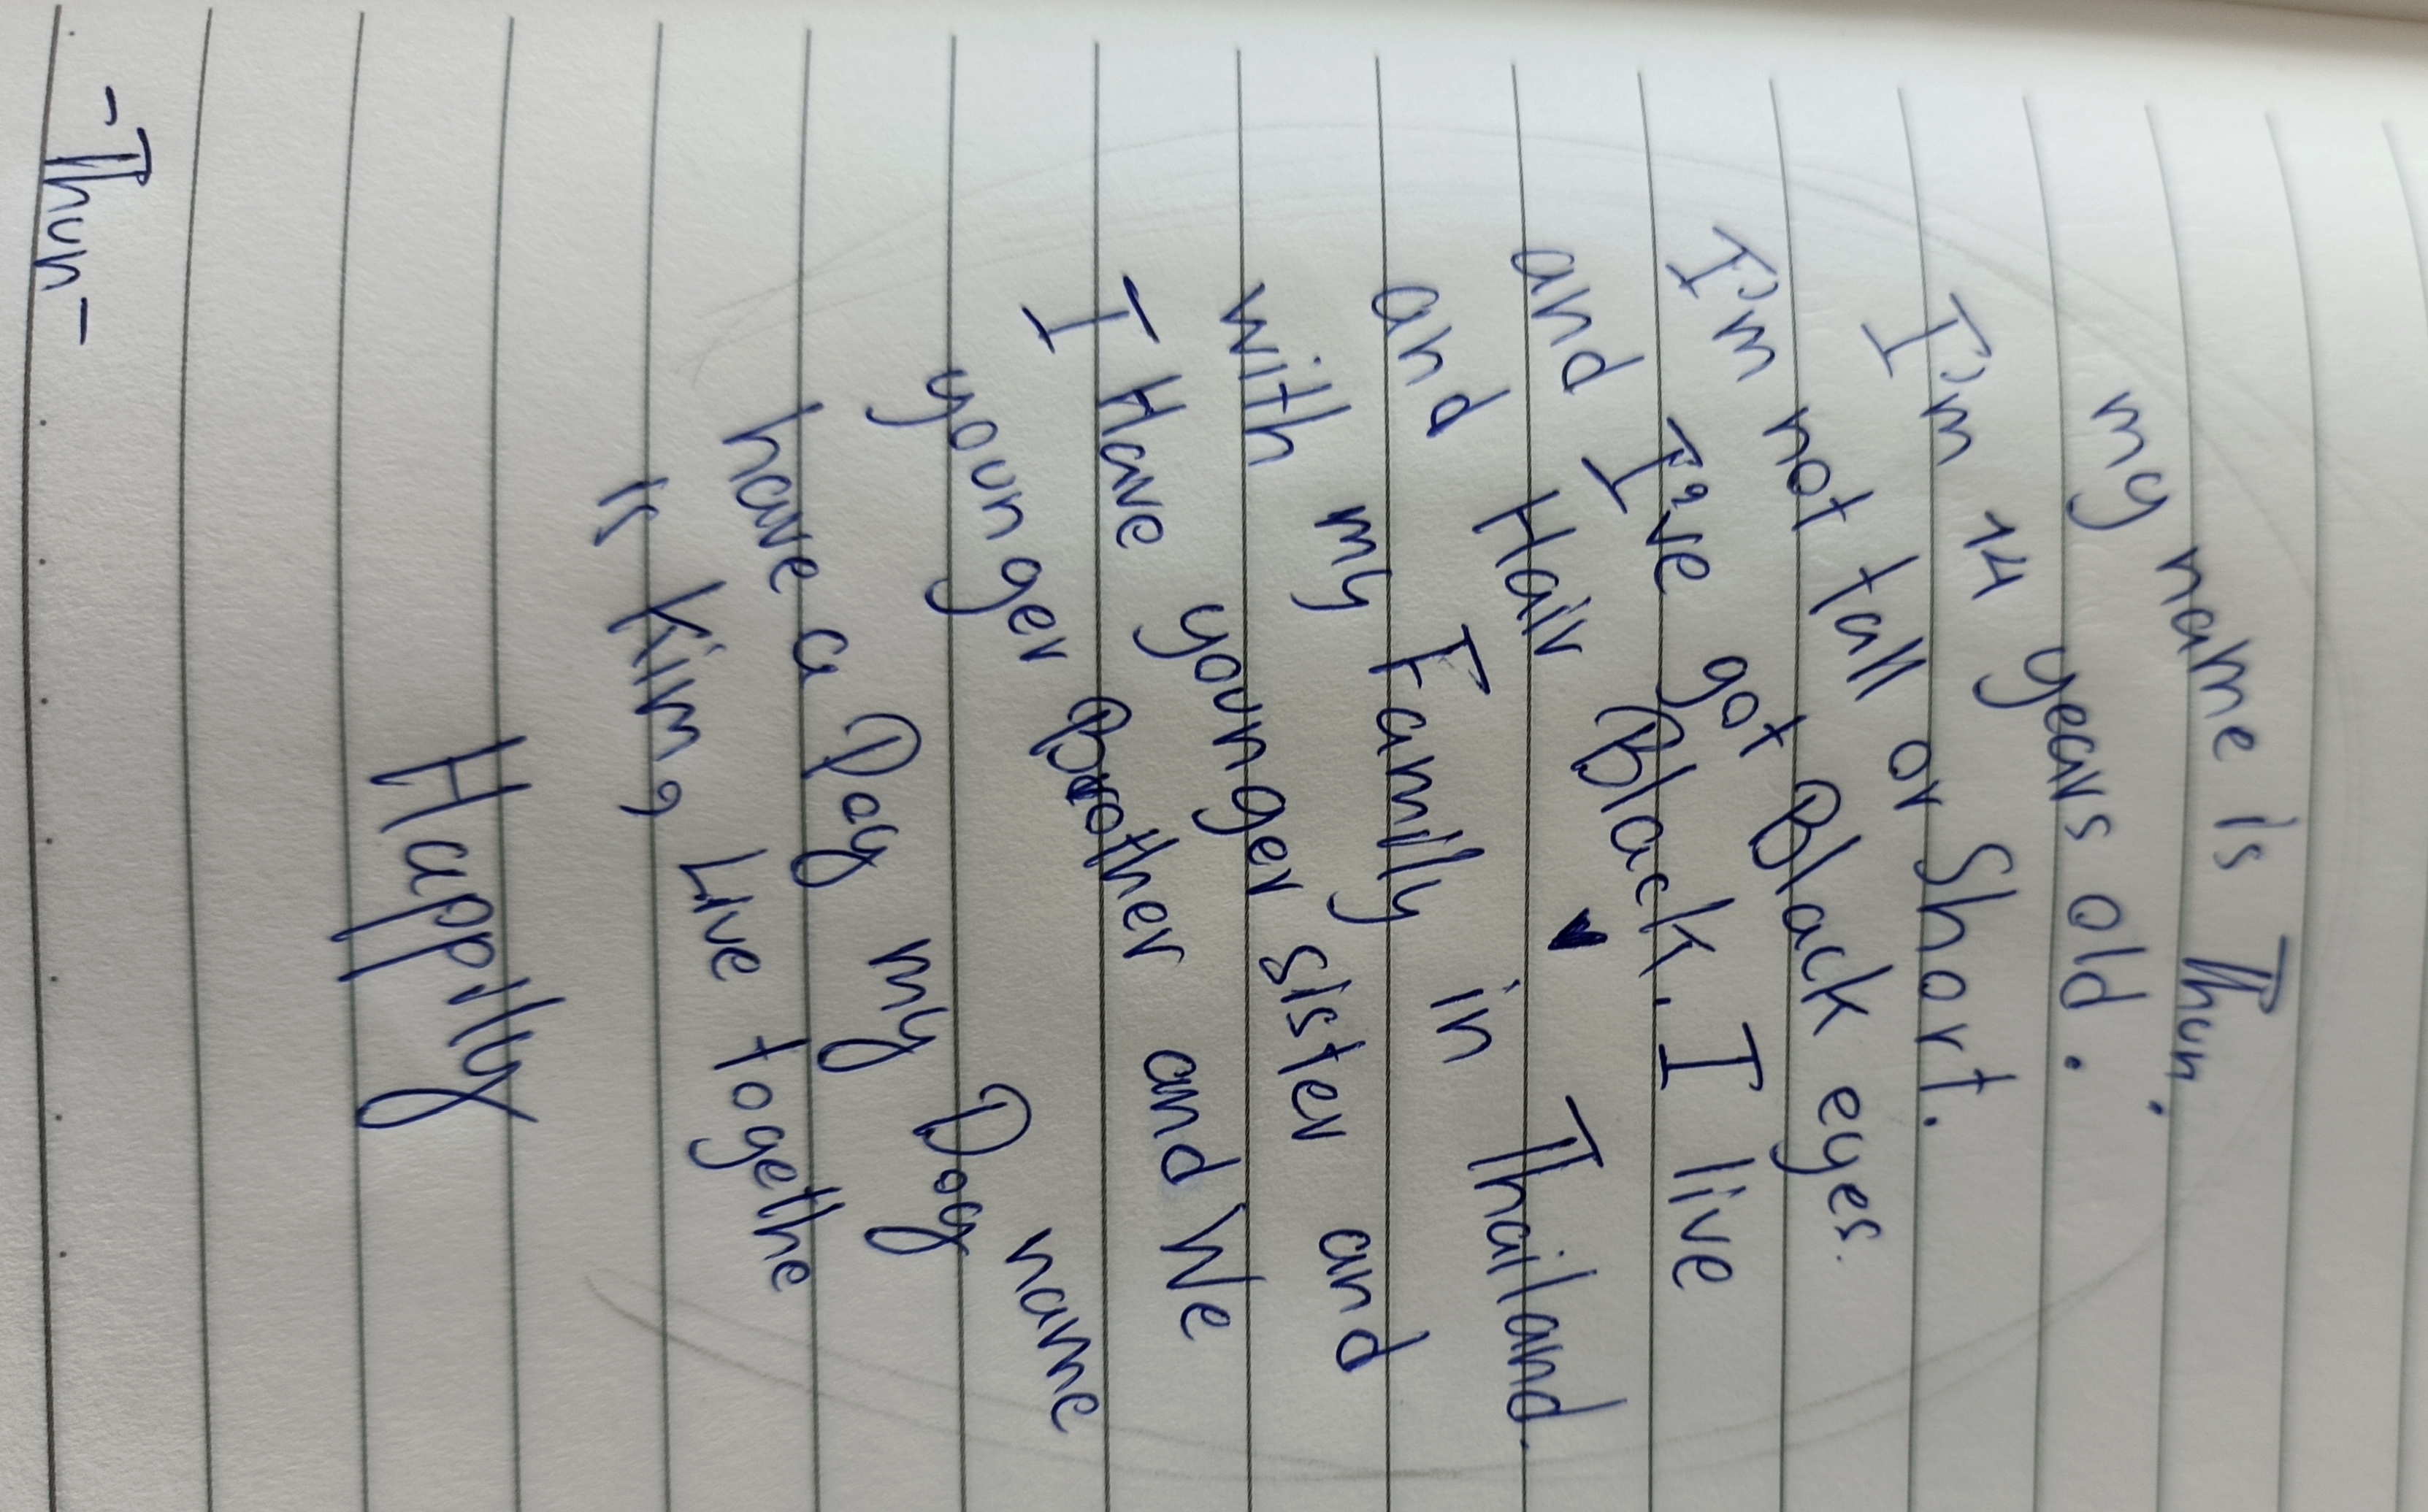 my name is Thun.
I'm 14 years old.
I'm not tall or Short.
and I've got Black eyes.
and Hair Black. I live
with my Family in Thailand.
I Have younger sister and
younger Brother and We
have a Dog my Dog name
is Kiim, Live togethe
Happily
-Thun-